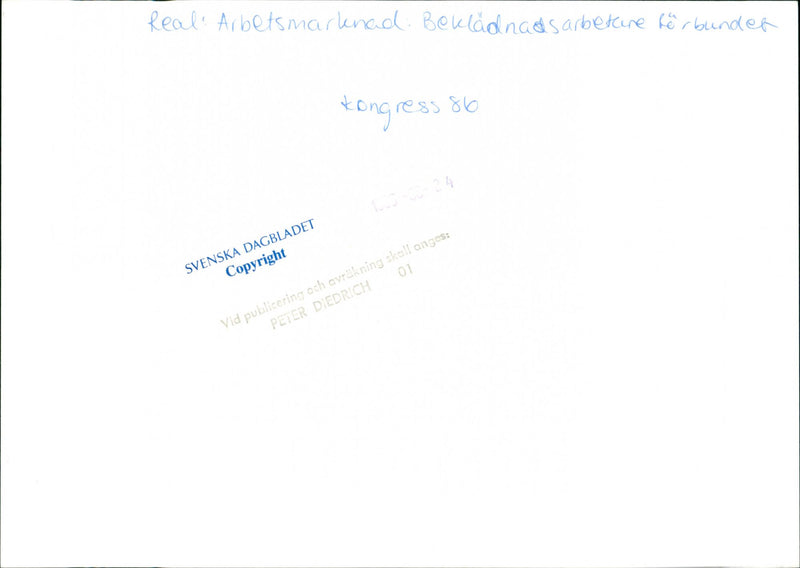 Real: Arbetsmarknad: Beklädnadsarbetare förbundet
kongress 86
SVENSKA DAGBLADET
Copyright
Vid publicering och avräkning skall anges:
PETER DIEDRICH 01